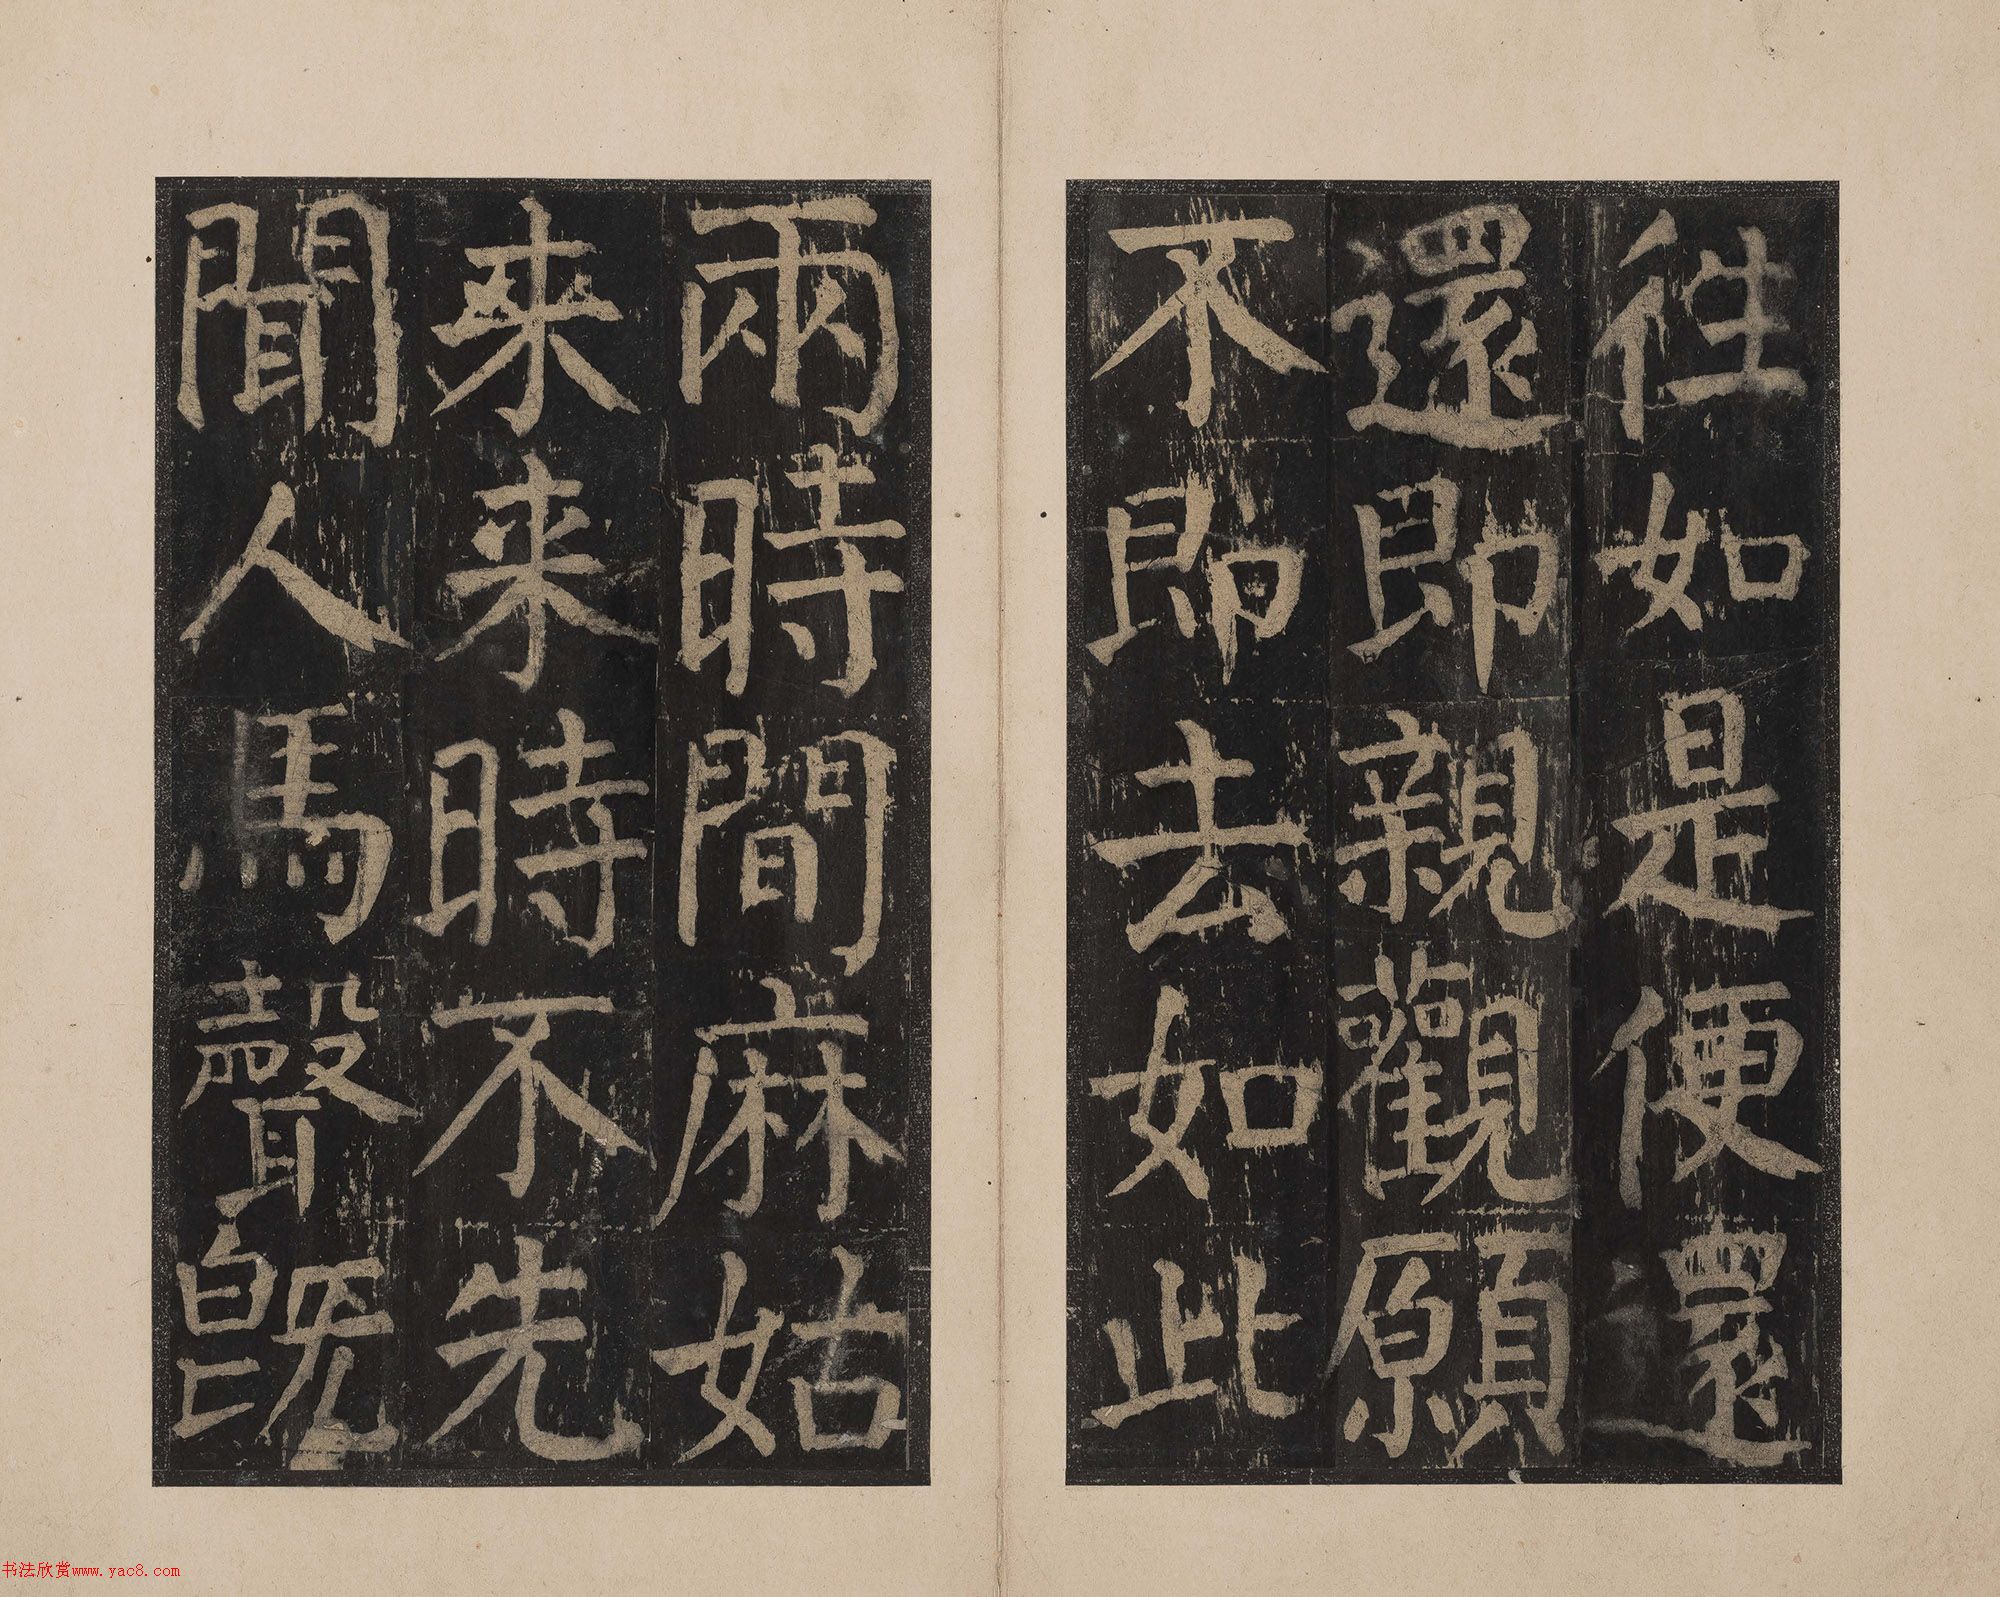 往如是便還
還即親觀願
不即去如此
兩時間麻姑
来来時不先
聞人馬聲既
书法欣赏www.yac8.com